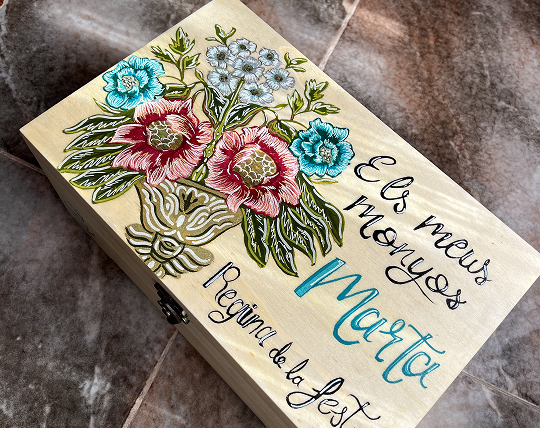 Els meus
monyos
Marta
Regina de la fest